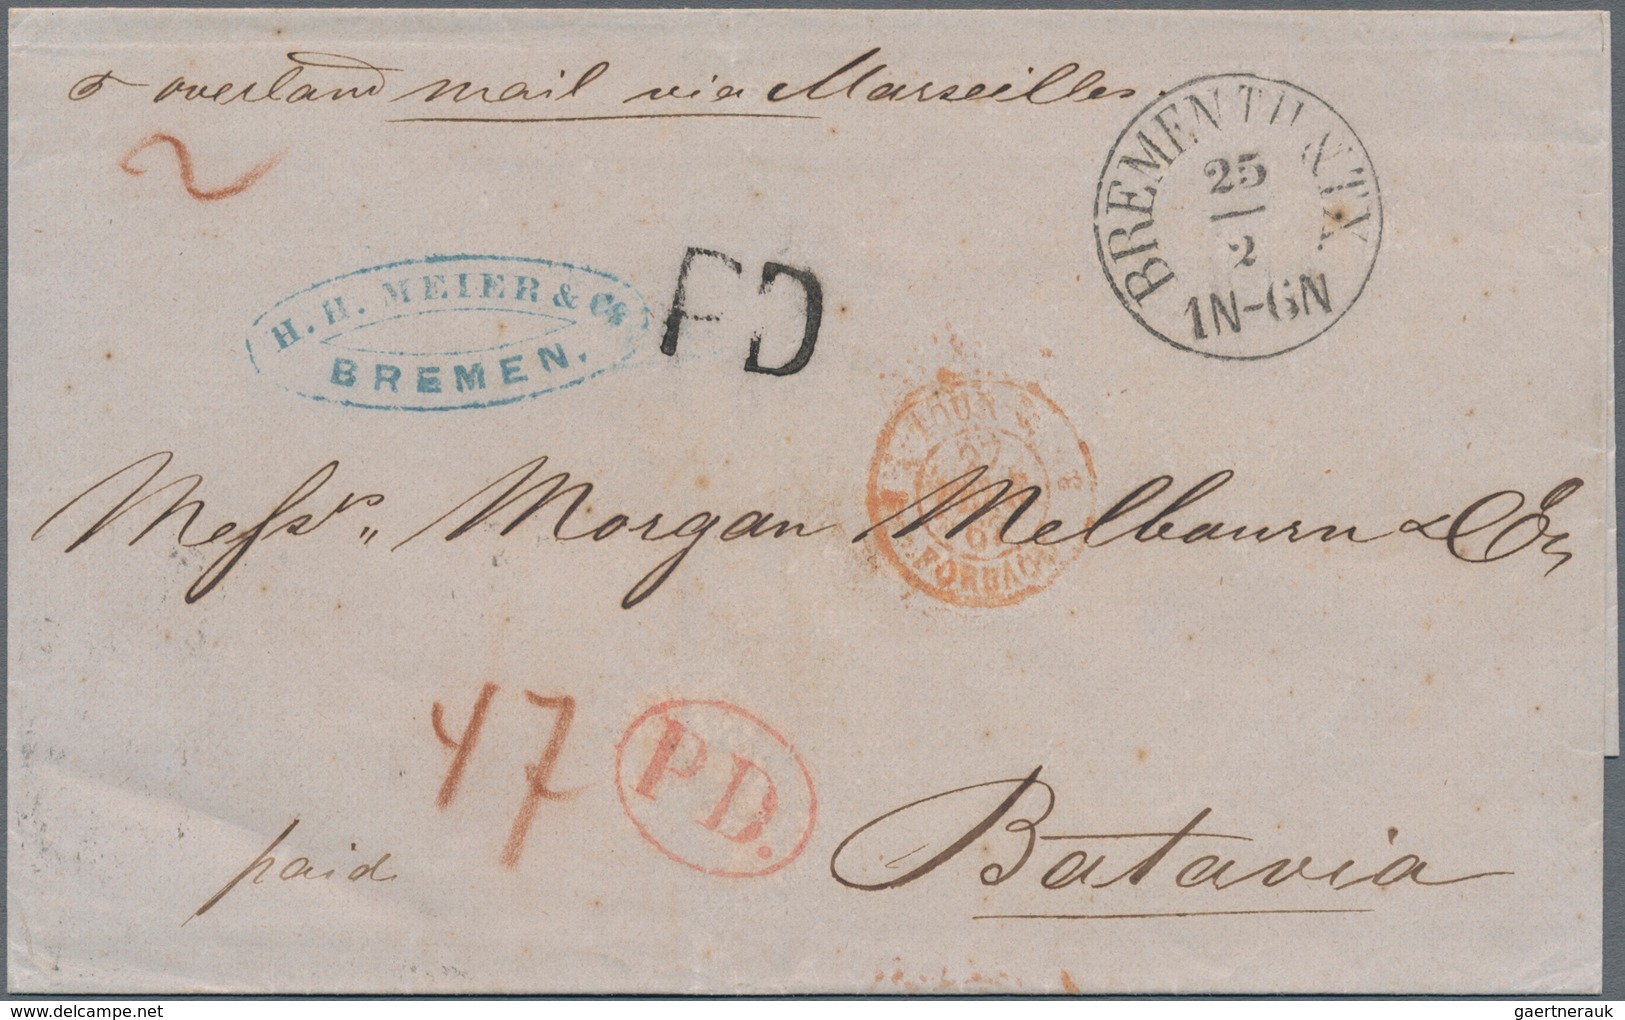 overland mail via Marseilles.
BREMEN TH & TX
25
2
1N-6N
2
H. H. MEIER & Co
BREMEN.
PD
TOUR
FORBACH
Messrs. Morgan Melbourn & Co
47
P.D.
paid
Batavia
gaertnerauk